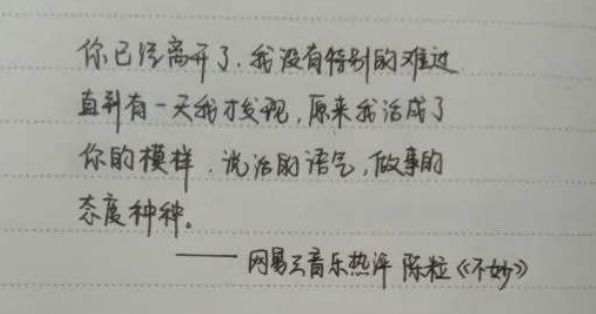 你已经离开了，我没有特别的难过
直到有一天我才发现，原来我活成了
你的模样，说话的语气，做事的
态度种种。
——网易云音乐热评 陈粒《不妙》